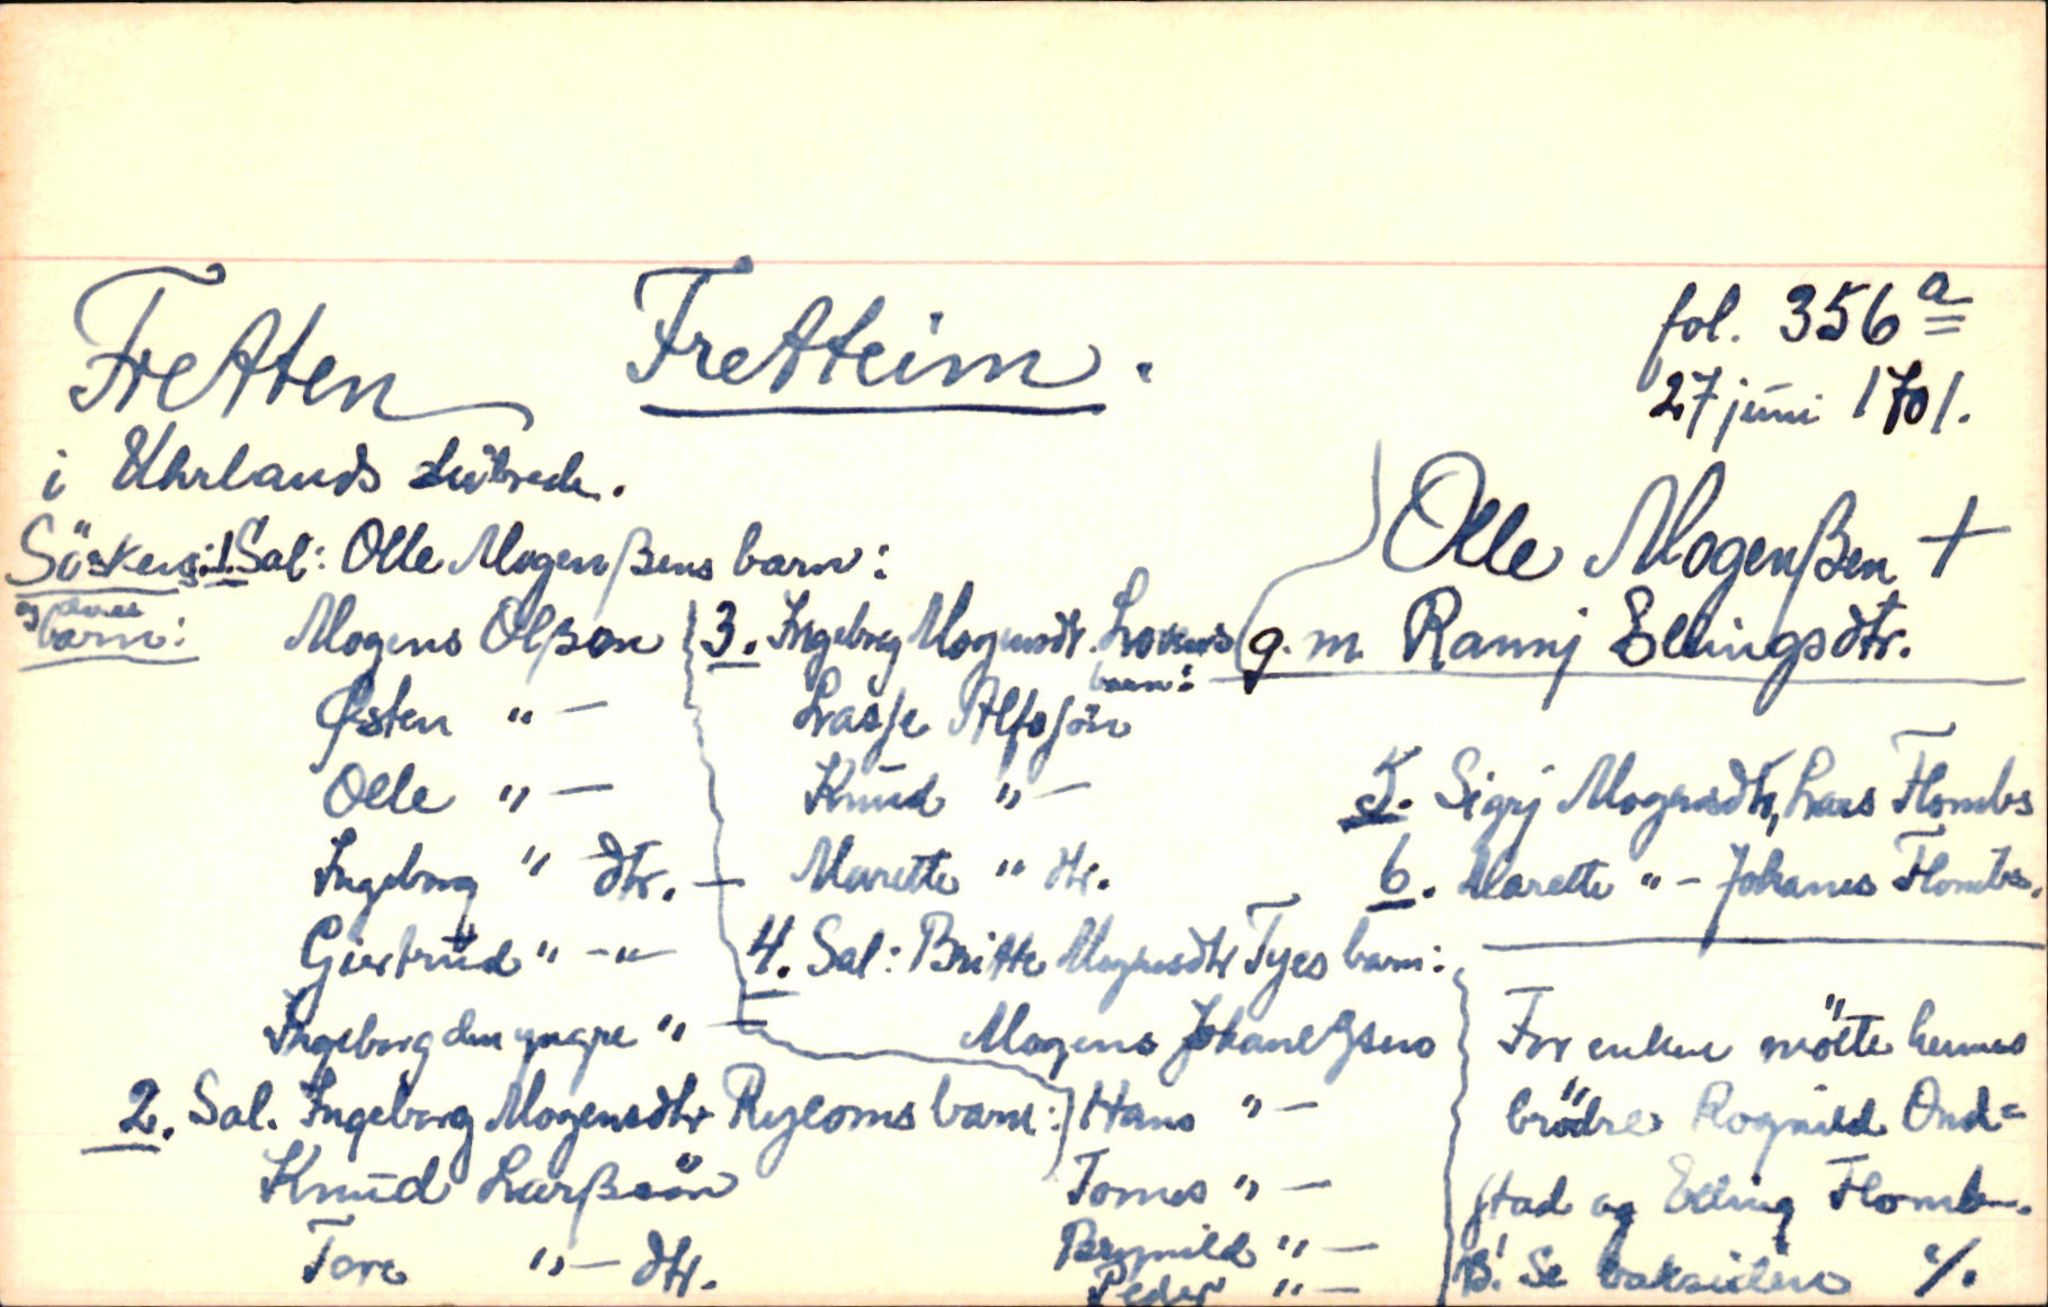 Fretten
Fretteim.
fol. 356 a
27 juni 1701.
i Uhrlands
Olle Mogenßen +
g. m. Ranni Ellingsdtr.
Söskens: 1. Sal: Olle Mogenßens barn:
og deres
barn:
Mogens Olßøn
Østen " —
Olle " —
Ingeborg " dtr. —
Giertrud " - " —
Ingeborg den yngre " —
2. Sal. Ingeborg Mogensdtr Ryeoms barn:
Knud Larßøn
Tore " — dtr.
3. Ingeborg Mogensdtr.
barn:
Lasse
Knud " —
Marette " dtr.
4. Sal: Britte Mogensdtr Tyes barn:
Mogens
Hans " —
Tomes " —
Brynild " —
Peder " —
5. Sigrj Mogensdtr, Lars Flombs
6. Marette " - Johanes Flombs.
For enken mötte hennes
brödre Rognild Ond=
stad og Elling Flomb.
B! Se baksiden ·/.